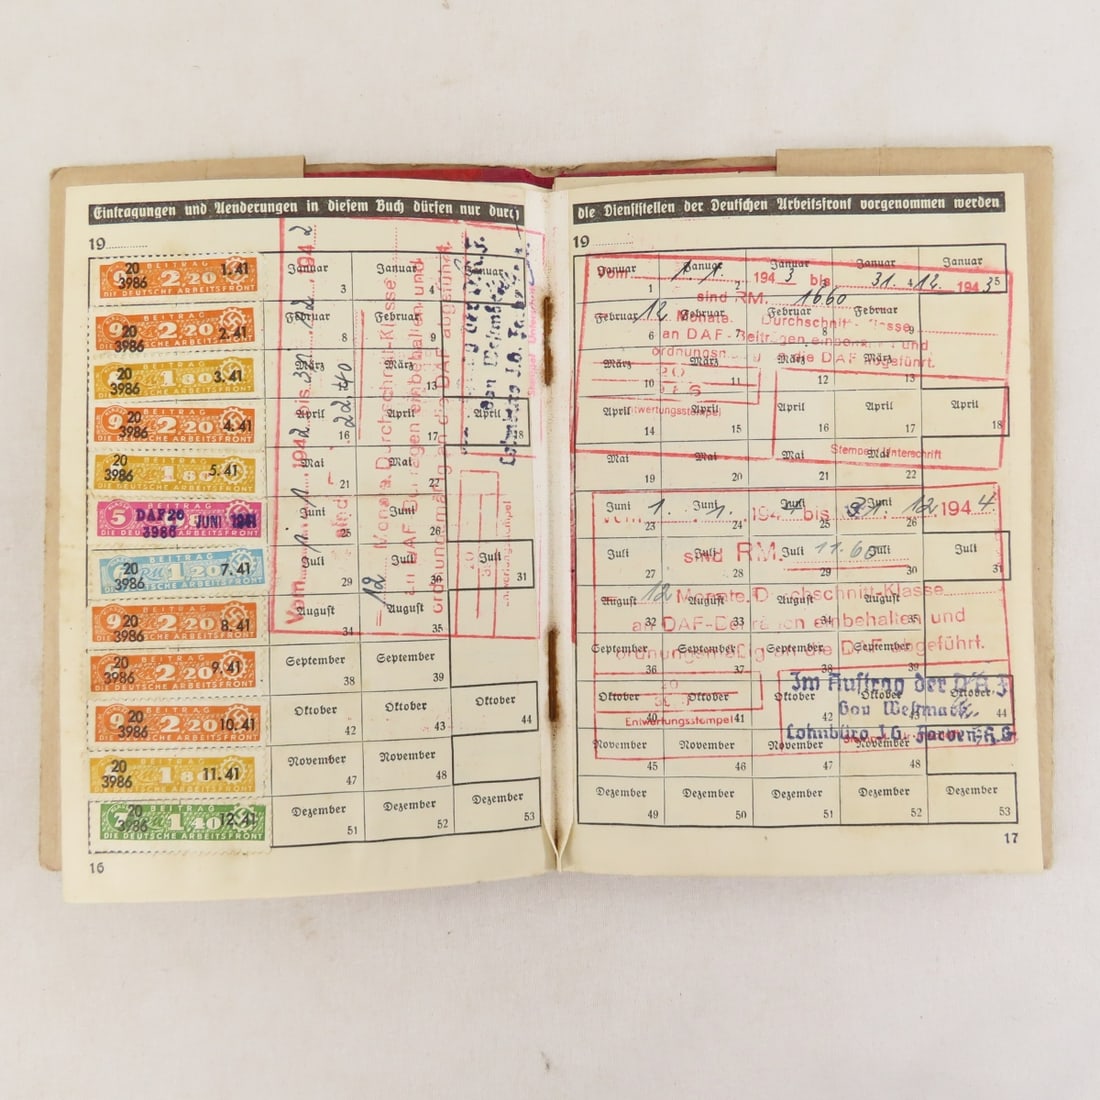 Eintragungen und Aenderungen in diesem Buch dürfen nur durch
19
20 3986 BEITRAG 2.20 1.41 DIE DEUTSCHE ARBEITSFRONT
20 3986 BEITRAG 2.20 2.41 DIE DEUTSCHE ARBEITSFRONT
20 3986 BEITRAG 1.80 3.41 DIE DEUTSCHE ARBEITSFRONT
20 3986 BEITRAG 2.20 4.41 DIE DEUTSCHE ARBEITSFRONT
20 3986 BEITRAG 1.80 5.41 DIE DEUTSCHE ARBEITSFRONT
5 DAF20 3986 JUNI 1941 DIE DEUTSCHE ARBEITSFRONT
20 3986 BEITRAG 1.20 7.41 DIE DEUTSCHE ARBEITSFRONT
20 3986 BEITRAG 8.41 DIE DEUTSCHE ARBEITSFRONT
20 3986 BEITRAG 2.20 9.41 DIE DEUTSCHE ARBEITSFRONT
20 3986 BEITRAG 2.20 10.41 DIE DEUTSCHE ARBEITSFRONT
20 3986 BEITRAG 1.80 11.41 DIE DEUTSCHE ARBEITSFRONT
20 3986 BEITRAG 1.40 12.41 DIE DEUTSCHE ARBEITSFRONT
Januar 3 Januar 4 Januar
Februar 8 Februar 9
März März 13
April 16 April 17 April 18
Mai 21 Mai 22
Juni 25 Juni 26
Juli 29 Juli 30 Juli 31
August 34 August 35
September 38 September 39
Oktober 42 Oktober 43 Oktober 44
November 47 November 48
Dezember 51 Dezember 52 Dezember 53
Vom 1. 1. 1942 bis 1942
12 Monate Durchschnitt-Klasse
an DAF-Beiträgen einbehalten und
ordnungsmäßig an die DAF abgeführt.
Entwertungsstempel
16
die Dienststellen der Deutschen Arbeitsfront vorgenommen werden
19
Januar 1 Januar 2 Januar Januar 4 Januar 5
Februar 6 Februar 7 Februar 8 Februar 9
März 10 März 11 März 12 März 13
April 14 April 15 April 16 April 17 April 18
Mai 19 Mai 20 Mai 21 Mai 22
Juni 23 Juni 24 Juni 25 Juni 26
Juli 27 Juli 28 Juli 29 Juli 30 Juli 31
August 32 August 33 August 34 August 35
September 36 September 37 September 38 September 39
Oktober 40 Oktober 41 Oktober 42 Oktober 43 Oktober 44
November 45 November 46 November 47 November 48
Dezember 49 Dezember 50 Dezember 51 Dezember 52 Dezember 53
Vom 1. 1. 1943 bis 31. 12. 1943
sind RM. 1660
12 Monate Durchschnitt-Klasse
an DAF-Beiträgen einbehalten und
ordnungsmäßig an die DAF abgeführt.
Entwertungsstempel
Stempel Unterschrift
Vom 1. 1. 194 bis 31. 12 1944.
sind RM. 11.60
12 Monate Durchschnitt-Klasse
an DAF-Beiträgen einbehalten und
ordnungsmäßig an die DAF abgeführt.
Entwertungsstempel
Im Auftrag der D.A.F.
Gau Westmark
Lohnbüro I.G. Farben A.G
17